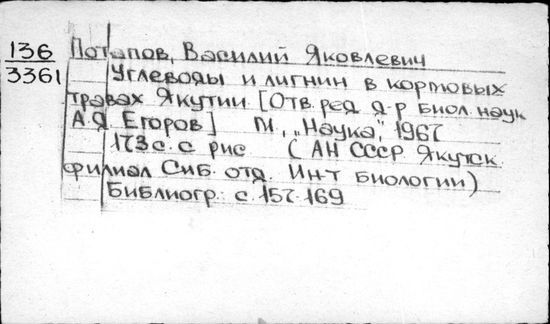 136
3361
Потапов, Василий Яковлевич
Углеводы и лигнин в кормовых
травах Якутии [Отв. ред. д-р биол. наук
А.Я. Егоров] М., „Наука", 1967
173 с. с рис (АН СССР Якутск.
филиал Сиб. отд. Ин-т биологии)
Библиогр. с. 157-169